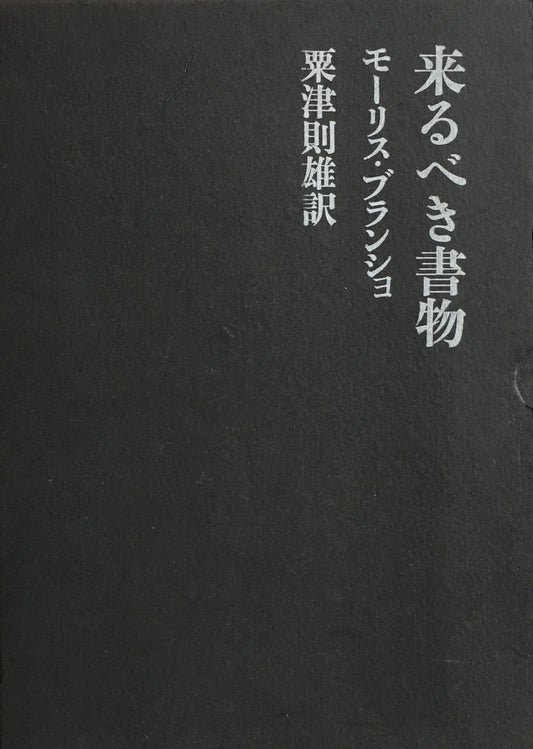 来るべき書物
モーリス・ブランショ
粟津則雄訳